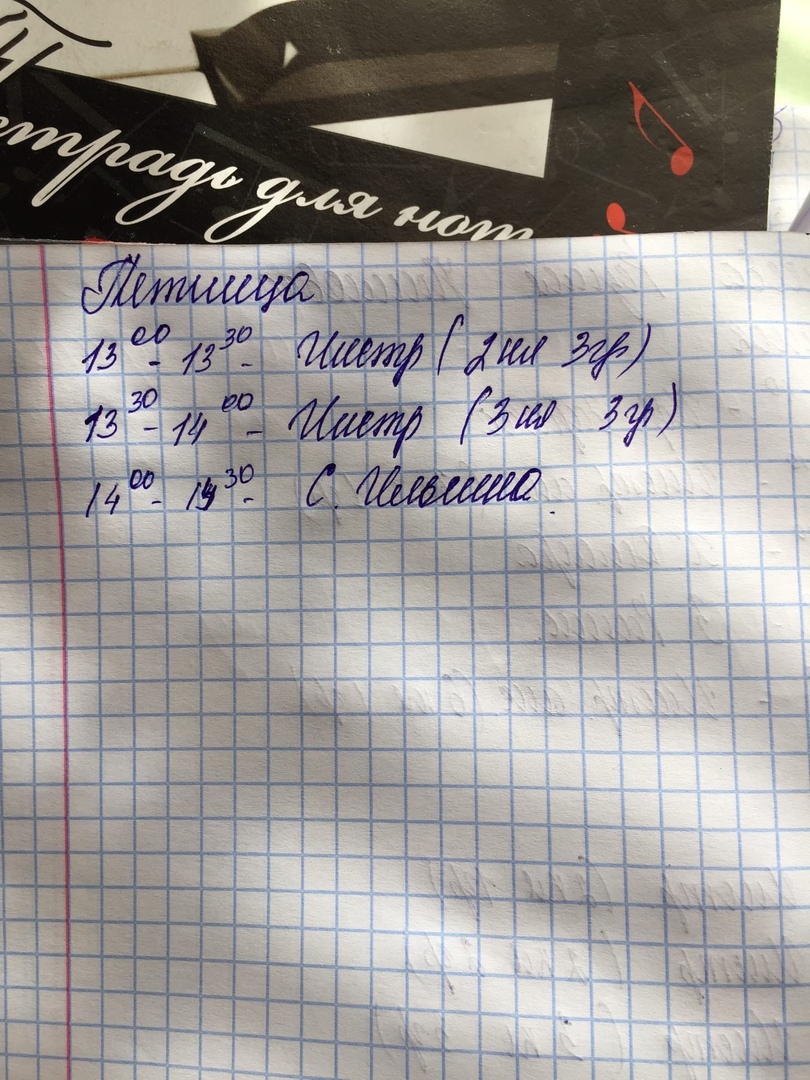 тетрадь для нот
Пятница
13 00 - 13 30 - Инстр (2 кл 3 гр)
13 30 - 14 00 - Инстр (3 кл 3 гр)
14 00 - 14 30 - С. Ильина.